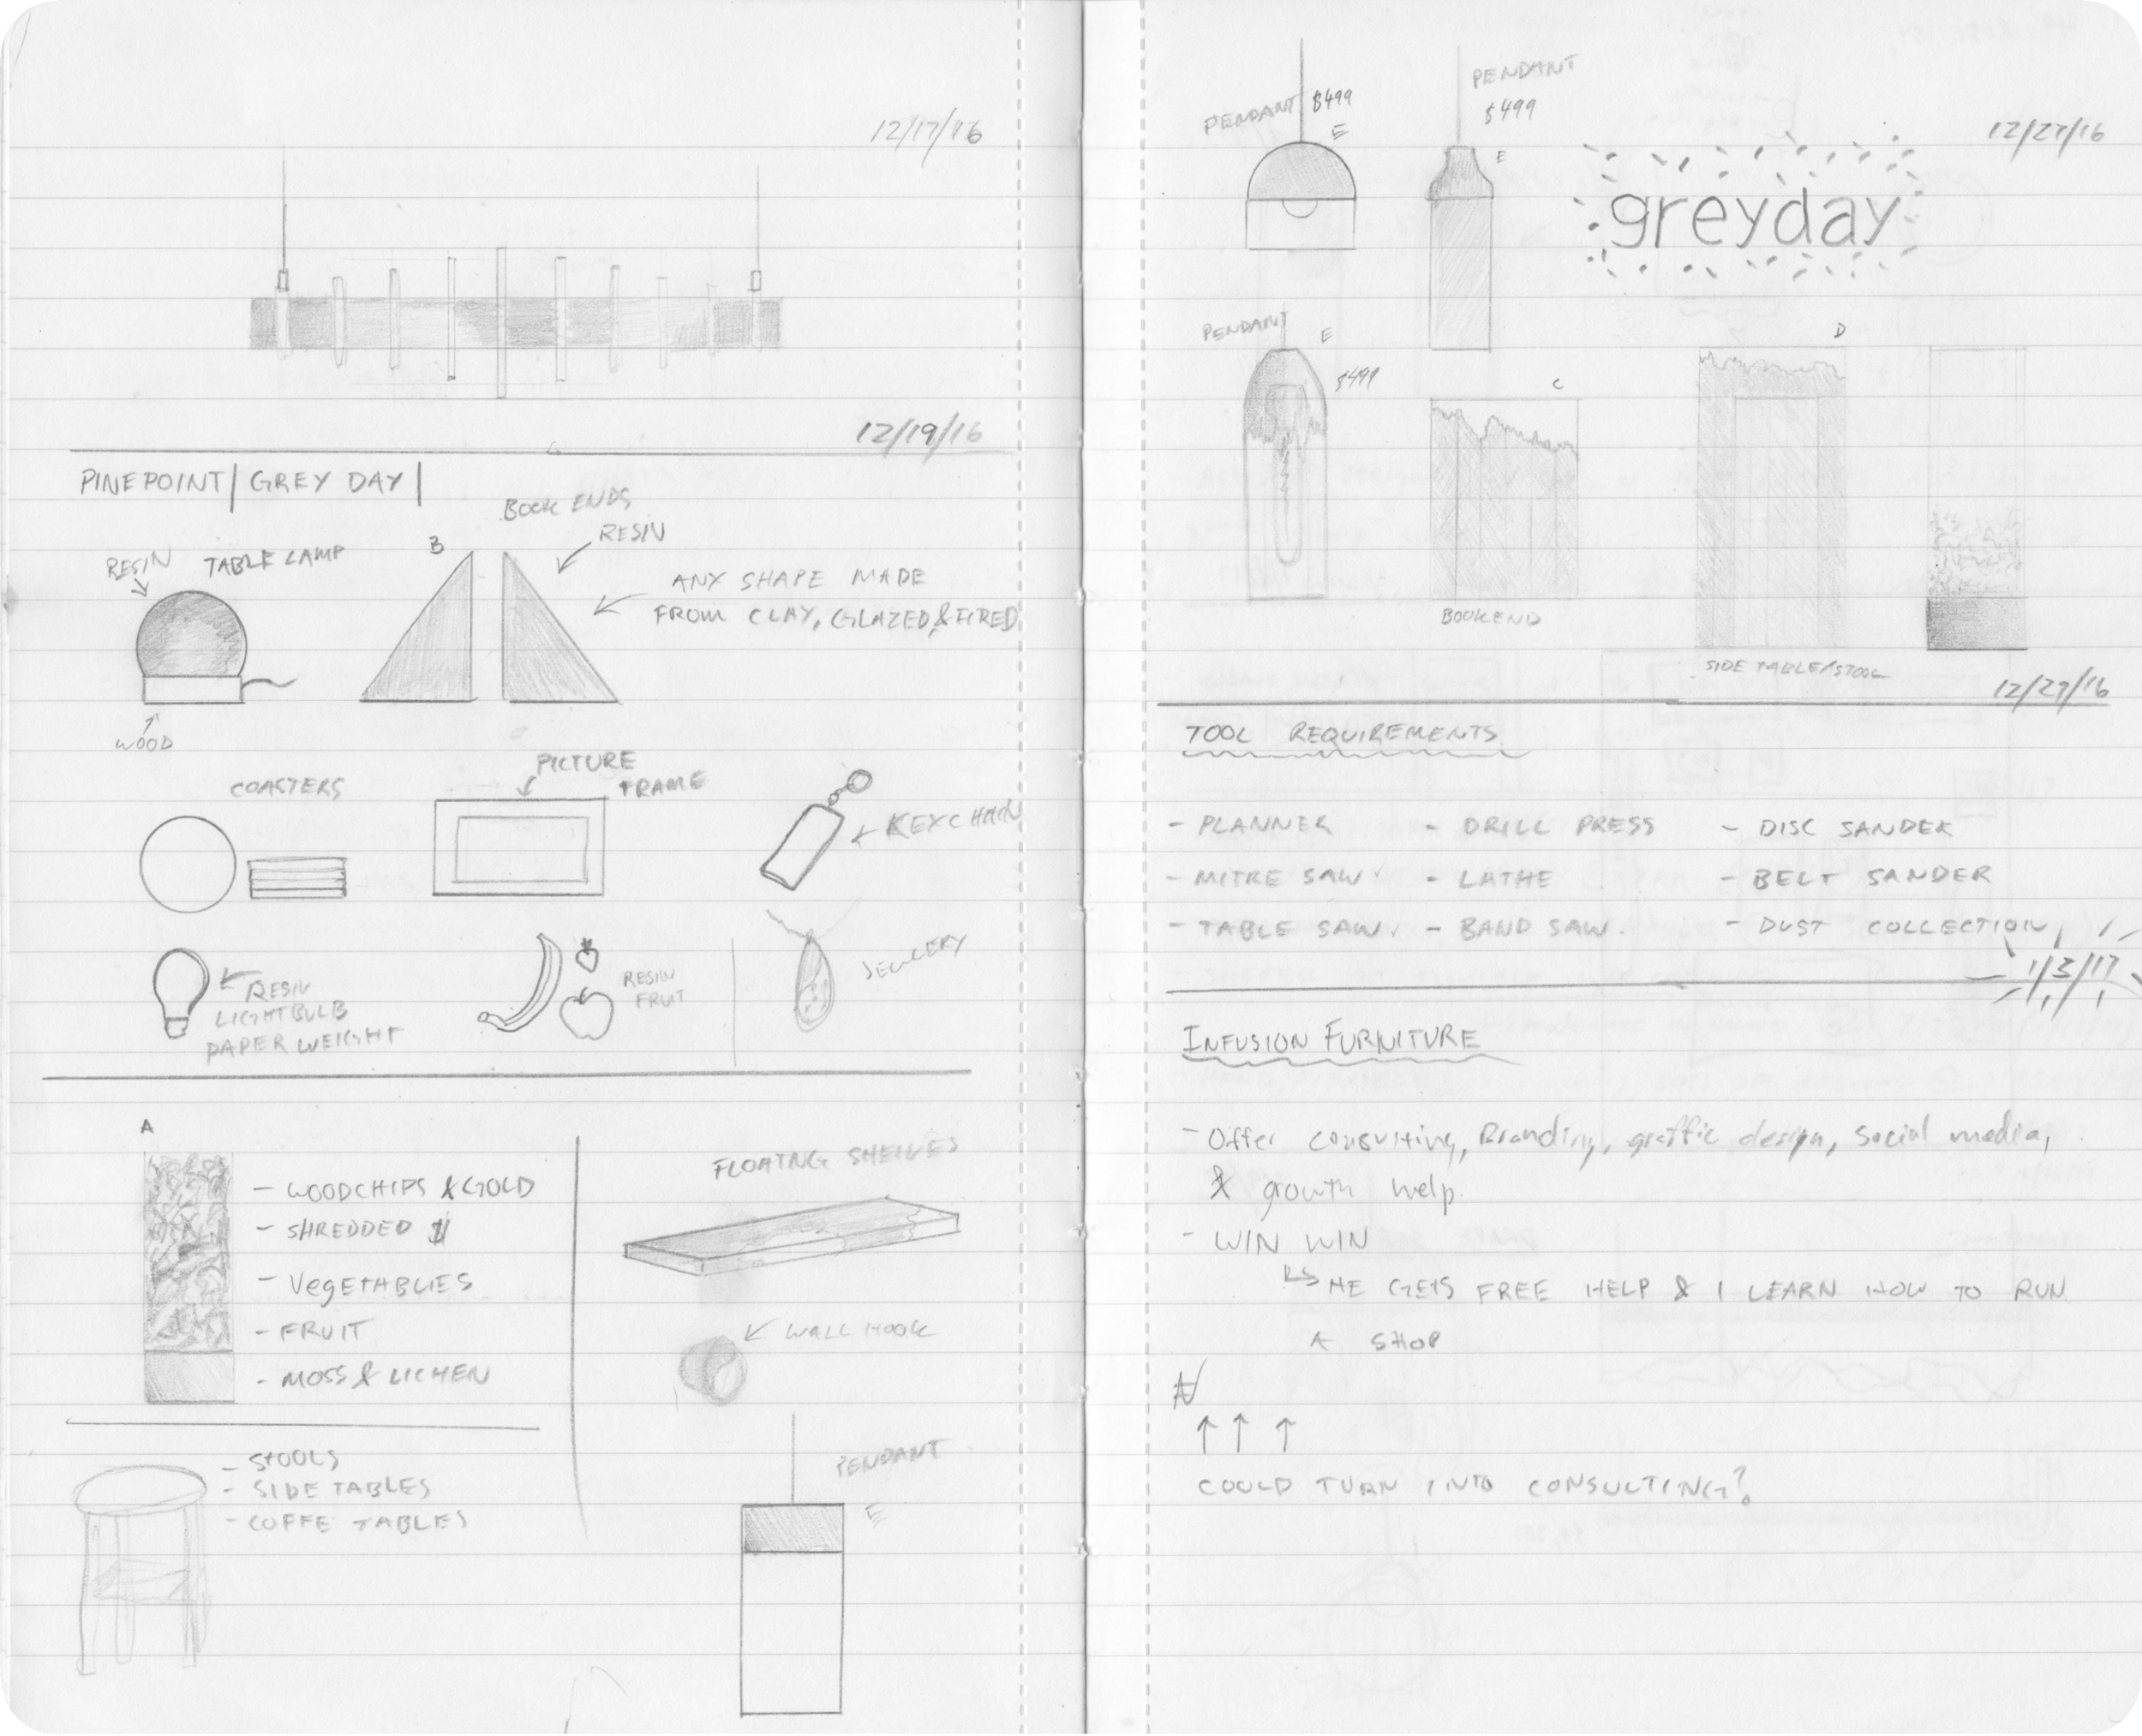 12/17/16
12/19/16
PINEPOINT | GREY DAY |
BOOK ENDS
RESIN
RESIN TABLE LAMP
B
ANY SHAPE MADE
FROM CLAY, GLAZED & FIRED
WOOD
COASTERS
PICTURE
FRAME
KEYCHAIN
RESIN
LIGHTBULB
PAPER WEIGHT
RESIN
FRUIT
JEWLERY
A
- WOODCHIPS & GOLD
- SHREDDED $
- VegETABLIES
- FRUIT
- MOSS & LICHEN
FLOATING SHELVES
WALL HOOK
- STOOLS
- SIDE TABLES
- COFFE TABLES
PENDANT
E
PENDANT $499
E
PENDANT
$499
E
12/27/16
greyday
PENDANT
E
$499
C
BOOKEND
D
SIDE TABLE/STOOL
12/27/16
TOOL REQUIREMENTS
- PLANNER - DRILL PRESS - DISC SANDER
- MITRE SAW - LATHE - BELT SANDER
- TABLE SAW - BAND SAW - DUST COLLECTION
1/3/17
INFUSION FURNITURE
- Offer consulting, Branding, graffic design, Social media,
& growth help.
- WIN WIN
↳ HE GETS FREE HELP & I LEARN HOW TO RUN
A SHOP
↑ ↑ ↑
COULD TURN INTO CONSULTING?